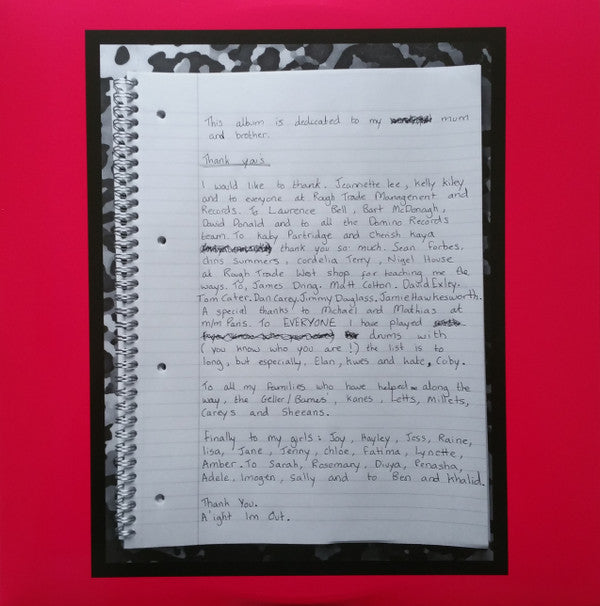 This album is dedicated to my mum
and brother.
Thank yous
I would like to thank. Jeannette lee, kelly kiley
and to everyone at Rough Trade Management and
Records. To Lawrence Bell, Bart McDonagh,
David Donald and to all the Domino Records
team. To Kaby Partridge and Cherish Kaya
thank you so much. Sean Forbes,
chris summers, cordelia Terry, Nigel House
at Rough Trade West shop for teaching me the
ways. To, James Dring. Matt Colton. David Exley.
Tom Cater. Dan Carey. Jimmy Douglass. Jamie Hawkesworth.
A special thanks to Michael and Mathias at
m/m Paris. To EVERYONE I have played
drums with
(you know who you are!) the list is to
long, but especially, Elan, Kwes and Kate, Coby.
To all my families who have helped me along the
way, the Geller/Barnes', Kanes, Letts, Millets,
Careys and Sheeans.
Finally to my girls: Joy, Hayley, Jess, Raine,
lisa, Jane, Jenny, Chloe, Fatima, Lynette,
Amber. To Sarah, Rosemary, Divya, Renasha,
Adele, Imogen, Sally and to Ben and Khalid.
Thank You.
A'ight Im Out.